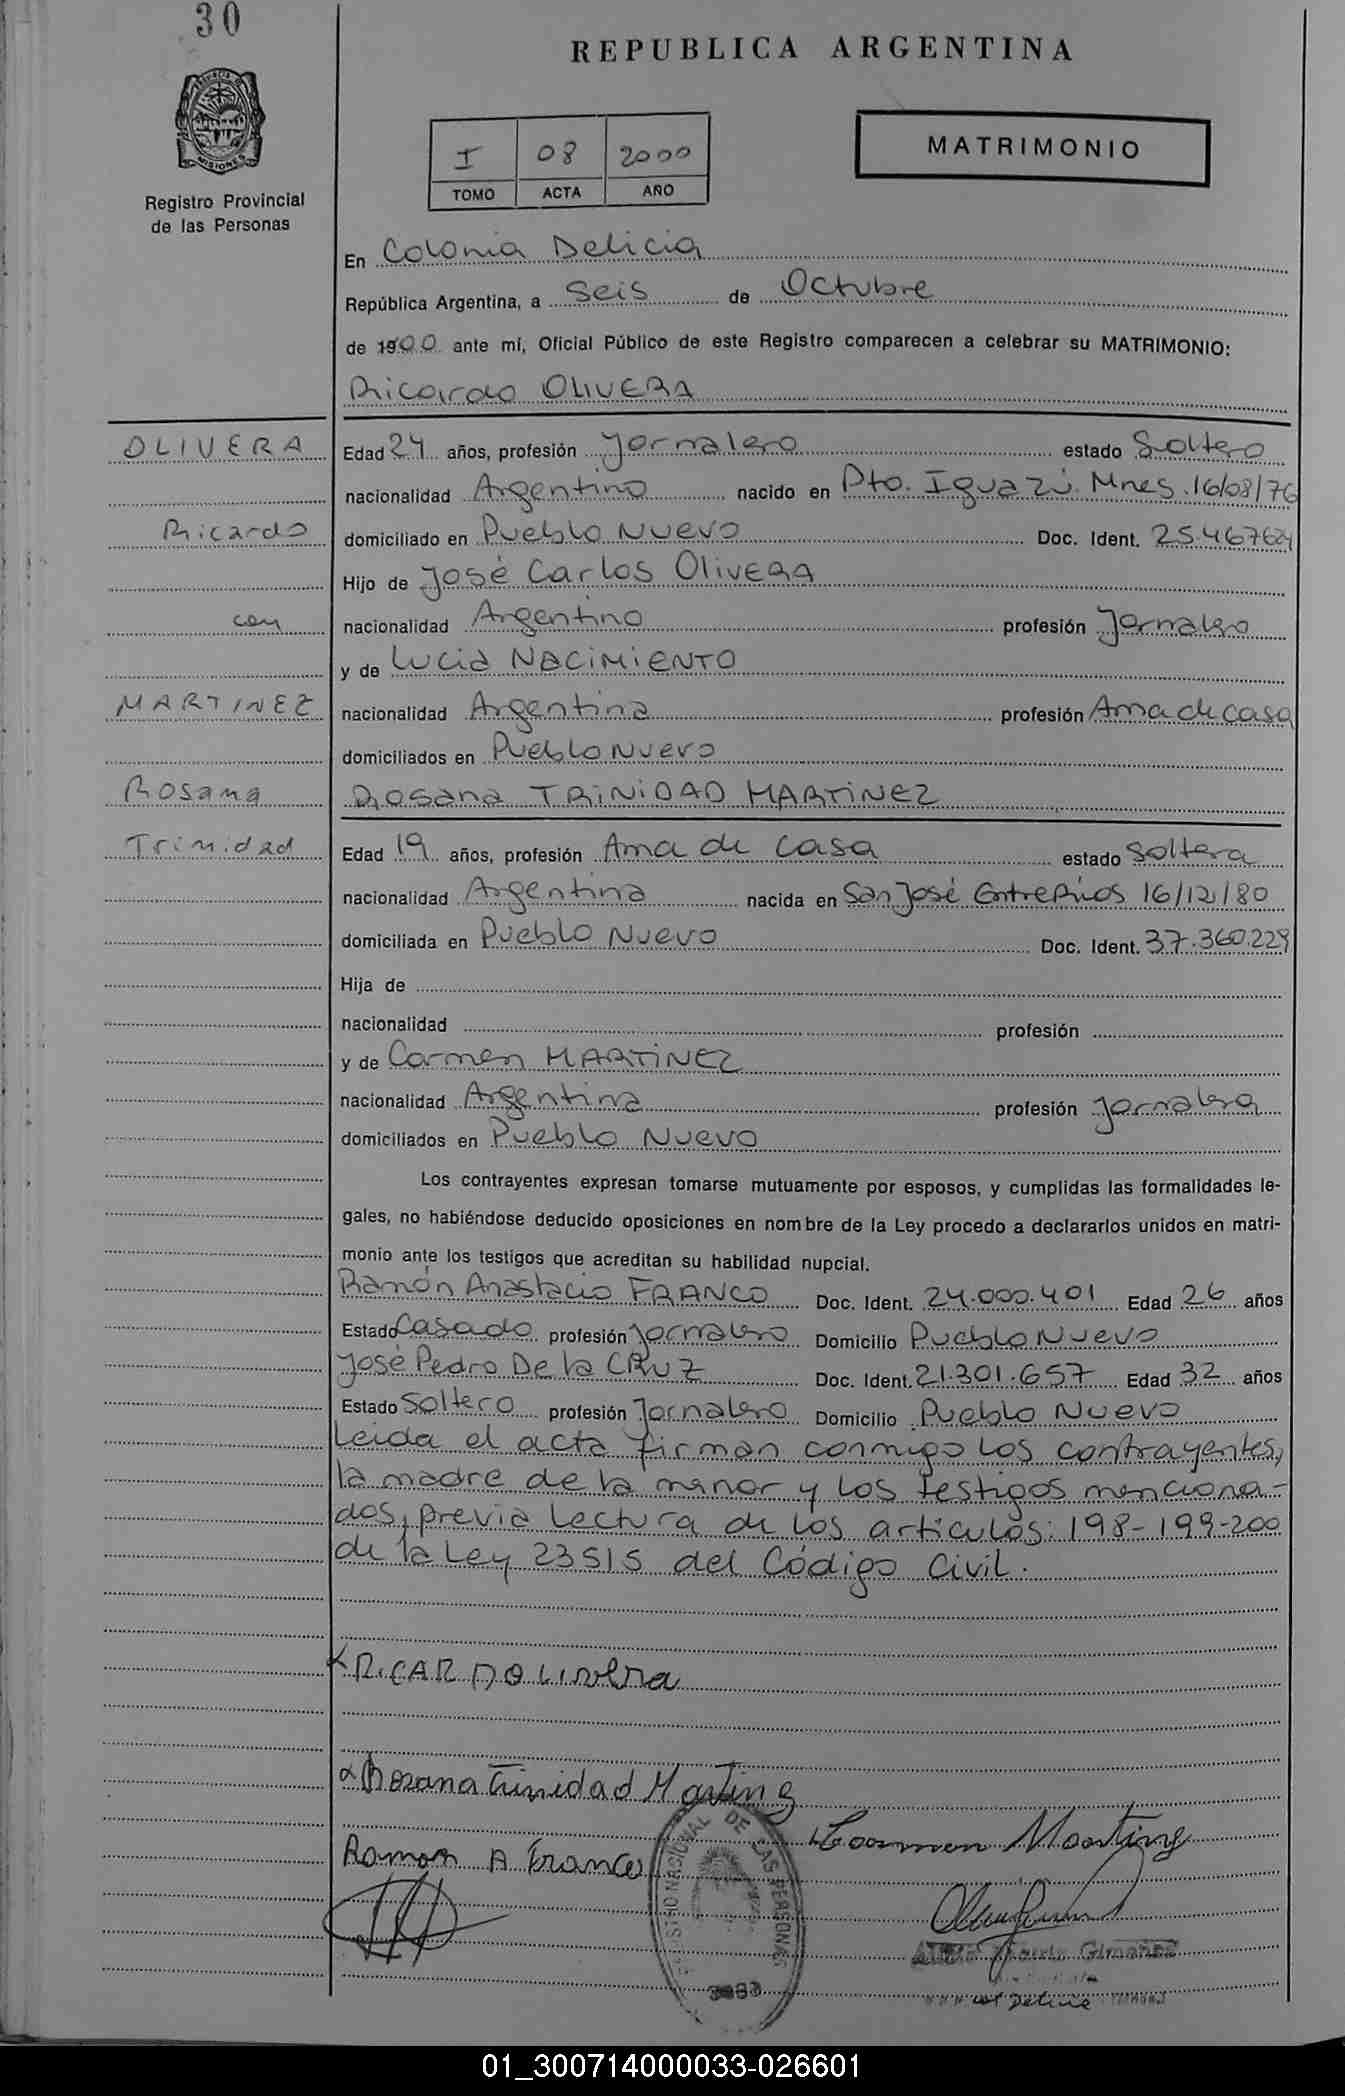 30
REPUBLICA ARGENTINA
MISIONES
Registro Provincial
de las Personas
I 08 2000
TOMO ACTA AÑO
MATRIMONIO
En Colonia Delicia
República Argentina, a Seis de Octubre
de 1900 ante mí, Oficial Público de este Registro comparecen a celebrar su MATRIMONIO:
Ricardo OLIVERA
OLIVERA
Edad 24 años, profesión Jornalero estado Soltero
nacionalidad Argentino nacido en Pto. Iguazú. Mnes. 16/08/76
Ricardo
domiciliado en Pueblo Nuevo Doc. Ident. 25.467624
Hijo de José Carlos OliveRA
con
nacionalidad Argentino profesión Jornalero
y de Lucia NACIMIENTO
MARTINEZ
nacionalidad Argentina profesión Ama de casa
domiciliados en Pueblo Nuevo
Rosana
Rosana TRINIDAD MARTINEZ
Trinidad
Edad 19 años, profesión Ama de casa estado Soltera
nacionalidad Argentina nacida en San José Entre Ríos 16/12/80
domiciliada en Pueblo Nuevo Doc. Ident. 37.360.229
Hija de
nacionalidad profesión
y de Carmen MARTINEZ
nacionalidad Argentina profesión Jornalera
domiciliados en Pueblo Nuevo
Los contrayentes expresan tomarse mutuamente por esposos, y cumplidas las formalidades le-
gales, no habiéndose deducido oposiciones en nombre de la Ley procedo a declararlos unidos en matri-
monio ante los testigos que acreditan su habilidad nupcial.
Ramón Anastacio FRANCO Doc. Ident. 24.000.401 Edad 26 años
Estado Casado profesión Jornalero Domicilio Pueblo Nuevo
José Pedro De la CRUZ Doc. Ident. 21.301.657 Edad 32 años
Estado Soltero profesión Jornalero Domicilio Pueblo Nuevo
Leida el acta firman conmigo los contrayentes,
la madre de la menor y los testigos menciona-
dos, previa lectura de los articulos: 198-199-200
de la Ley 23515 del Código Civil.
RiCARDO LIveRa
Rosana Trinidad Martinez
Carmen Martinez
Ramon A Franco
DE LAS PERSONAS
Gimenez
01_300714000033-026601